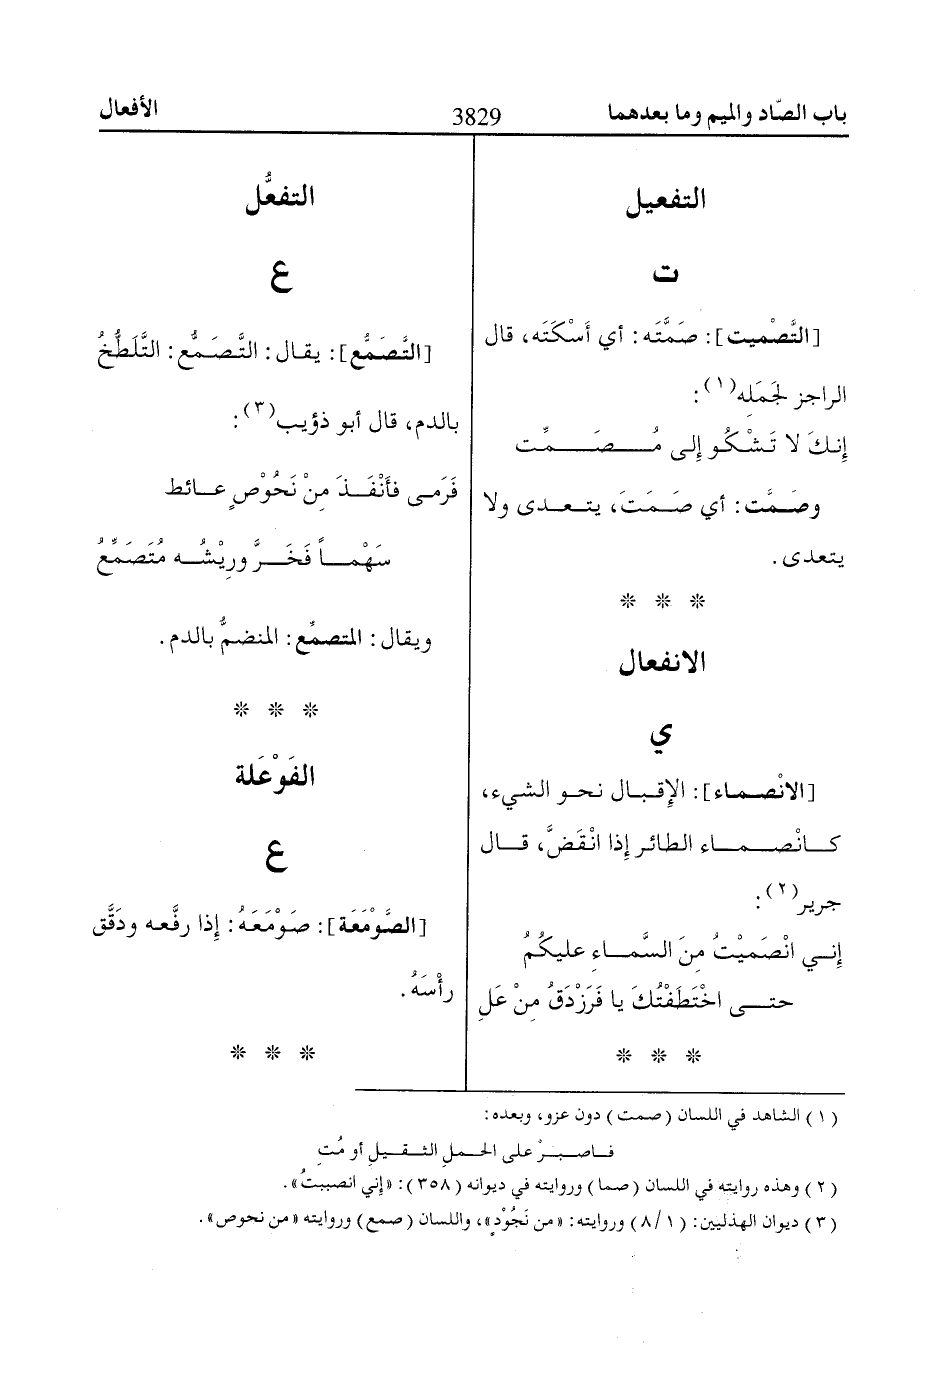 باب الصّاد والميم وما بعدهما
3829
الأفعال
التفعيل
ت
[التَّصْميت]: صَمَّتَه: أي أَسْكَتَه، قال
الراجز لجَمَله(١):
إنكَ لا تَشْكُو إلى مُصَمِّت
وصَمَّت: أي صَمَتَ، يتعدى ولا
يتعدى.
* * *
الانفعال
ي
[الانْصماء]: الإقبال نحو الشيء،
كانْصماء الطائر إذا انْقَضَّ، قال
جرير(٢):
إني انْصَميْتُ مِنَ السَّماءِ عليكُمُ
حتى اخْتَطَفْتُكَ يا فَرَزْدَقُ مِنْ عَلِ
* * *
التفعُّل
ع
[التَّصَمُّع]: يقال: التَّصَمُّع: التَّلَطُّخُ
بالدم، قال أبو ذؤيب(٣):
فَرَمى فأَنْفَذَ مِنْ نَحُوْصٍ عائط
سَهْماً فَخَرَّ ورِيْشُه مُتَصَمِّعُ
ويقال: المتصمِّع: المنضمُّ بالدم.
* * *
الفَوْعَلة
ع
[الصَّوْمَعَة]: صَوْمَعَهُ: إذا رفَّعه ودَقَّق
رأْسَهُ.
* * *
(١) الشاهد في اللسان (صمت) دون عزو، وبعده:
فاصبرْ على الحملِ الثقيلِ أو مُتِ
(٢) وهذه روايته في اللسان (صما) وروايته في ديوانه (٣٥٨): «إني انصببتُ».
(٣) ديوان الهذليين: (٨/١) وروايته: «من نَجُوْدٍ»، واللسان (صمع) وروايته «من نحوص».